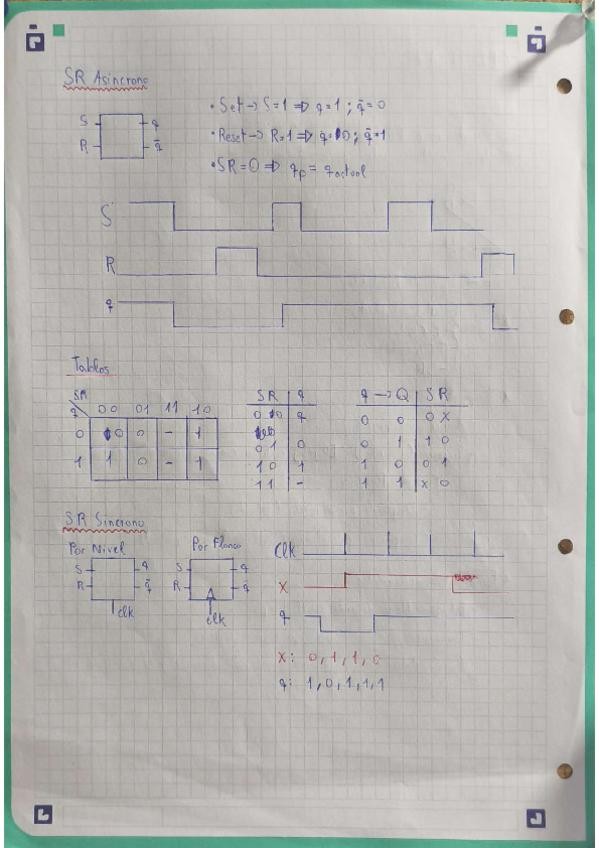 SR Asíncrono
S q
R q̄
• Set → S=1 ⇒ q=1 ; q̄=0
• Reset → R=1 ⇒ q=0 ; q̄=1
• SR=0 ⇒ qp = qactual
S
R
q
Tablas
SR
q 00 01 11 10
0 0 0 - 1
1 1 0 - 1
SR q
0 0 q
0 1 0
1 0 1
11 -
q → Q SR
0 0 0 X
0 1 1 0
1 0 0 1
1 1 X 0
SR Síncrono
Por Nivel
S q
R q̄
clk
Por Flanco
S q
R q̄
clk
Clk
X
q
X: 0,1,1,0
q: 1,0,1,1,1